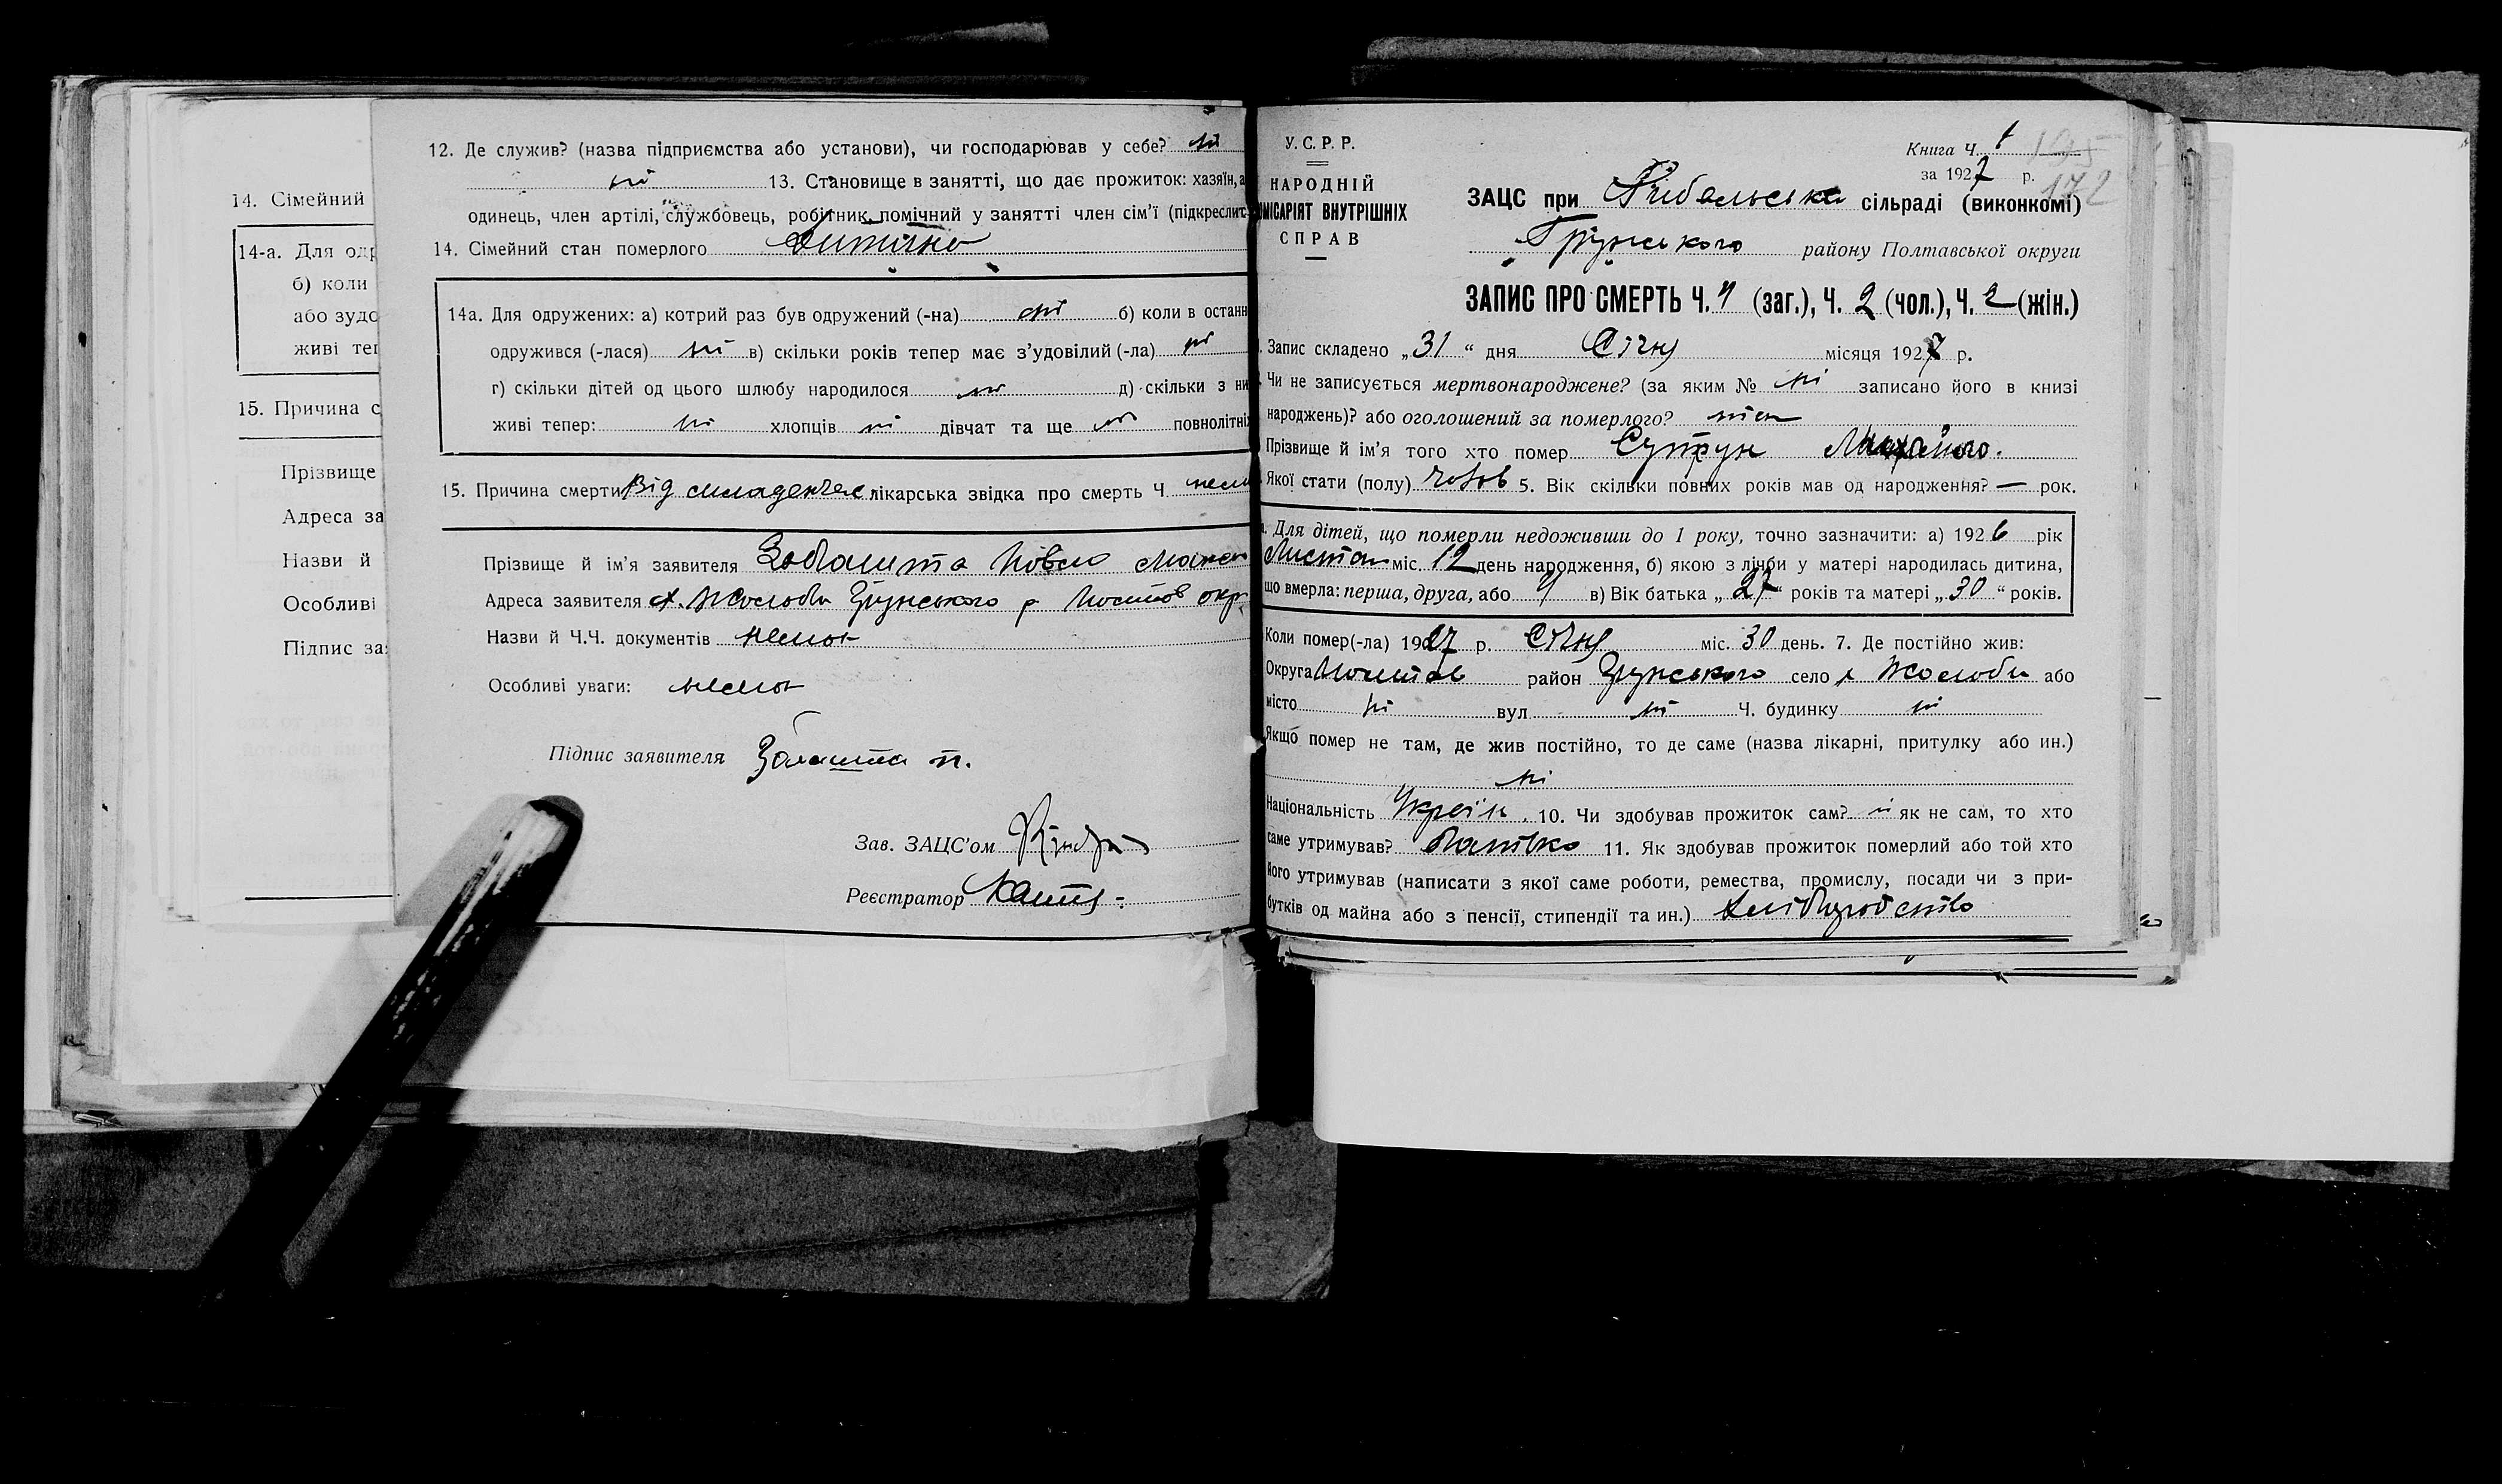 14. Сімейний
14-а. Для одр
б) коли
або зудо
живі теп
15. Причина с
Прізвище
Адреса за
Назви й
Особливі
Підпис за
12. Де служив? (назва підприємства або установи), чи господарював у себе? ні
ні 13. Становище в занятті, що дає прожиток: хазяїн, а
одинець, член артілі, службовець, робітник, помічний у занятті член сім’ї (підкреслит
14. Сімейний стан померлого
14а. Для одружених: а) котрий раз був одружений (-на) ні б) коли в останн
одружився (-лася) ні в) скільки років тепер має з’удовілий (-ла) ні
г) скільки дітей од цього шлюбу народилося ні д) скільки з ни
живі тепер: ні хлопців ні дівчат та ще ні повнолітніх
15. Причина смерти Від лікарська звідка про смерть Ч
Прізвище й ім’я заявителя
Адреса заявителя х. Жолоби Грунського р Полтав окр
Назви й Ч.Ч. документів немає
Особливі уваги: немає
Підпис заявителя
Зав. ЗАЦС’ом
Реєстратор
У. С. Р. Р.
НАРОДНІЙ
ОМІСАРІЯТ ВНУТРІШНІХ
СПРАВ
Книга Ч. 1
за 1927 р.
172
ЗАЦС при Рибальська сільраді (виконкомі)
Грунського району Полтавської округи
ЗАПИС ПРО СМЕРТЬ Ч. 4 (заг.), Ч. 2 (чол.), Ч. 2 (жін.)
Запис складено „31“ дня Січня місяця 1927 р.
Чи не записується мертвонароджене? (за яким № ні записано його в книзі
народжень)? або оголошений за померлого?
Прізвище й ім’я того хто помер
Якої стати (полу) чолов 5. Вік скільки повних років мав од народження? — рок.
Для дітей, що померли недоживши до 1 року, точно зазначити: а) 1926 рік
Листоп міс. 12 день народження, б) якою з лічби у матері народилась дитина,
що вмерла: перша, друга, або 4 в) Вік батька „27“ років та матері „30“ років.
Коли помер(-ла) 1927 р. Січня міс. 30 день. 7. Де постійно жив:
Округа Полтав район Грунського село х Жолоби або
місто ні вул ні Ч. будинку ні
Якщо помер не там, де жив постійно, то де саме (назва лікарні, притулку або ин.)
ні
Національність Україн. 10. Чи здобував прожиток сам? ні як не сам, то хто
саме утримував? Батько 11. Як здобував прожиток померлий або той хто
його утримував (написати з якої саме роботи, ремества, промислу, посади чи з при-
бутків од майна або з пенсії, стипендії та ин.) Хліборобство